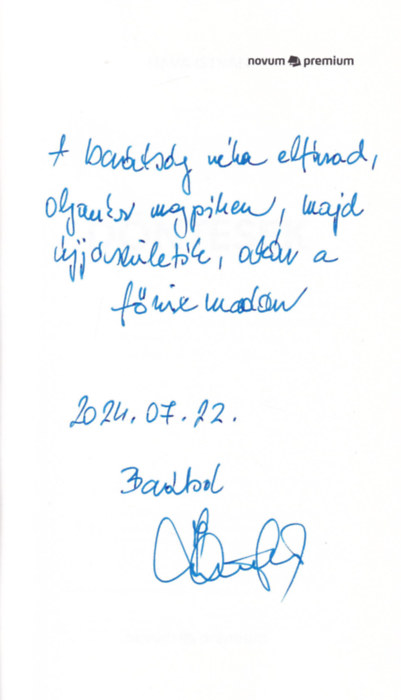 novum premium
A barátság néha elfárad,
olyankor megpihen, majd
újjászületik, akár a
főnix madár
2024. 07. 22.
Baráttal